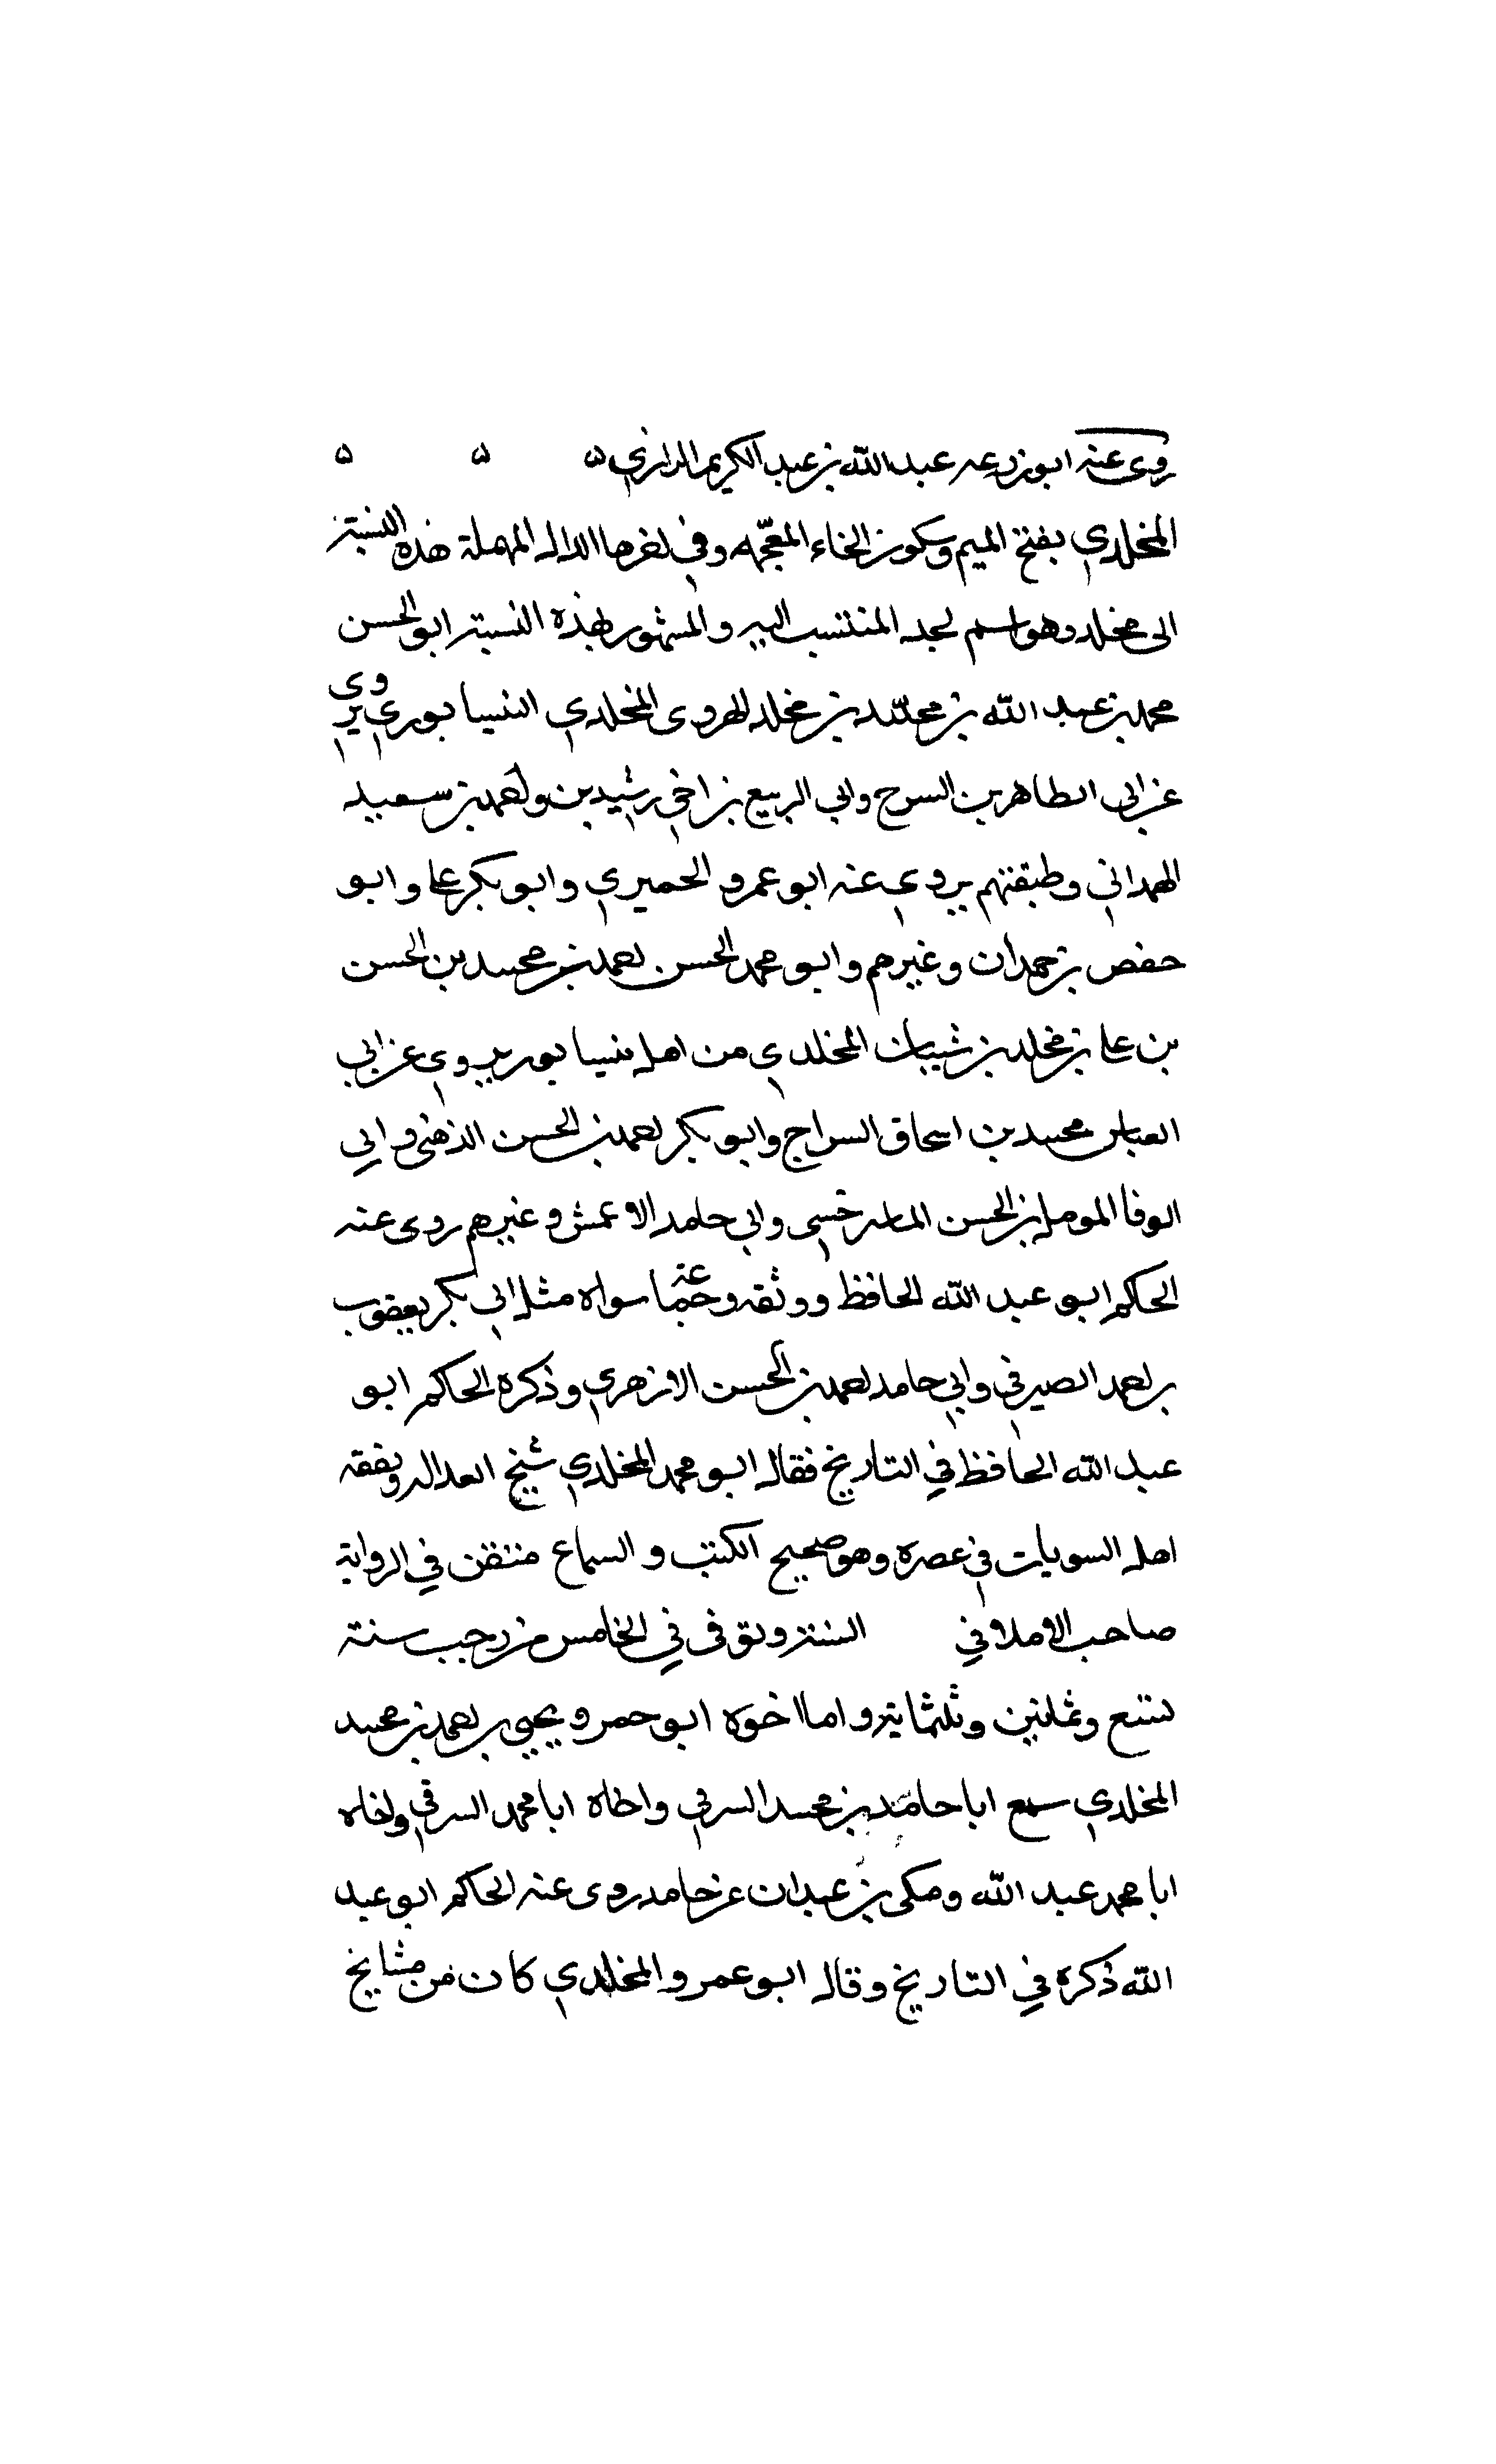 روى عنه ابو زرعه عبد الله بن عبد الكريم الرازي ه ه ه
المخلدي بفتح الميم وسكون الخاء المعجمه وفي اخرها الدال المهملة هذه النسبة
الى مخلد وهو اسم لجد المنتسب اليه والمشهور بهذه النسبة ابو الحسن
محمد بن عبد الله بن محمد بن مخلد الهروى المخلدي النيسابوري يروى
عن ابي الطاهر بن السرح وابي الربيع بن اخي رشيد بن واحمد بن سعيد
الهمداني وطبقتهم يروي عنه ابو عمرو الحميري وابو بكر علي وابو
حفص بن حمدان وغيرهم وابو محمد الحسن احمد بن محمد بن الحسن
بن علي بن مخلد بن شيبان المخلدي من اهل نيسابور يروي عن ابي
العباس محمد بن اسحاق السراج وابو بكر احمد بن الحسن الذهبي وابي
الوفا المومل بن الحسن الماسرخسي وابي حامد الاعمش وغيرهم روى عنه
الحاكم ابو عبد الله الحافظ ووثقه وعنه سواه مثل ابي بكر يعقوب
بن احمد الصيرفي وابي حامد احمد بن الحسن الازهري وذكره الحاكم ابو
عبد الله الحافظ في التاريخ فقال ابو محمد المخلدي شيخ العدالة وبقية
اهل السويات في عصره وهو صحيح الكتب والسماع متقن في الرواية
صاحب الاملا في السنة وتوفى في الخامس من رجب سنة
تسع وثمانين وثلثماية واما اخوه ابو عمرو يحيى بن احمد بن محمد
المخلدي سمع ابا حامد بن محمد السرقي واخاه ابا محمد السرقي واخاه
ابا محمد عبد الله ومكى بن عبدان عن حامد روى عنه الحاكم ابو عبد
الله ذكره في التاريخ وقال ابو عمرو المخلدي كان من مشايخ